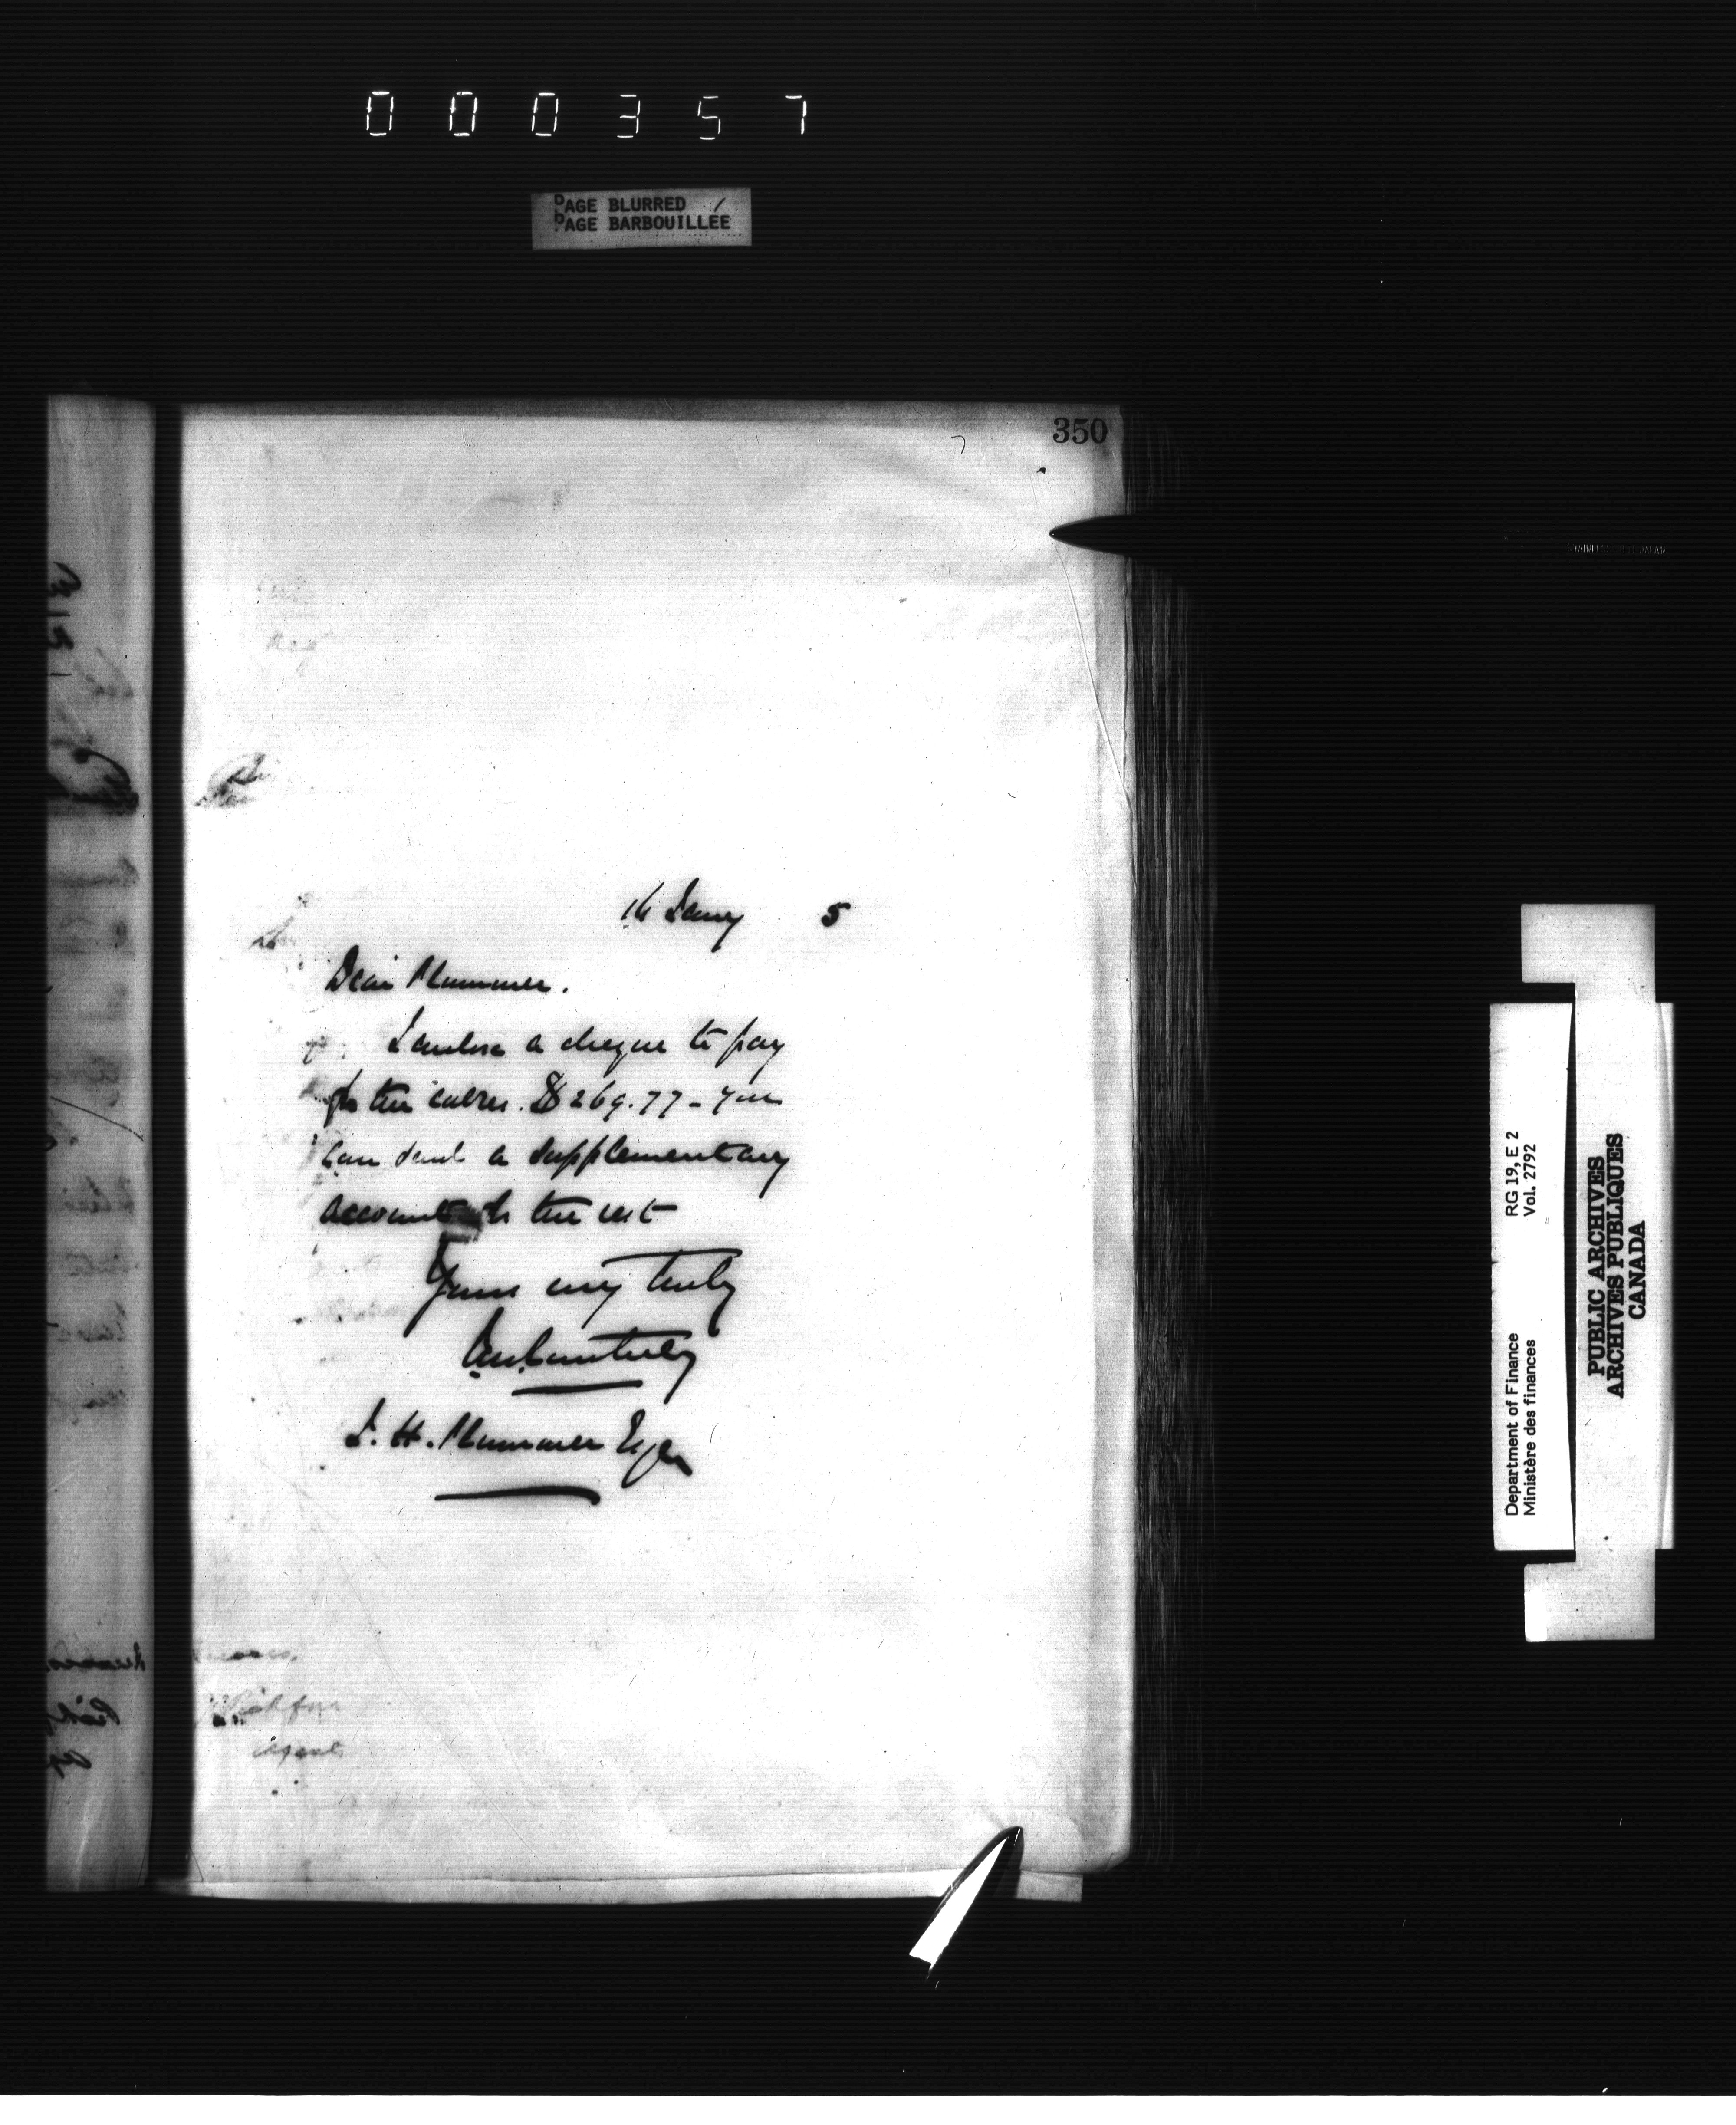 000357
PAGE BLURRED
PAGE BARBOUILLÉE
350
16 Jany 5
Dear Plummer.
I enclose a cheque to pay
for the cables. $269.77 - you
can send a supplementary
account for the rest
Yours very truly
J. H. Plummer Esqre
agent
Department of Finance RG 19, E 2
Ministère des finances Vol. 2792
PUBLIC ARCHIVES
ARCHIVES PUBLIQUES
CANADA